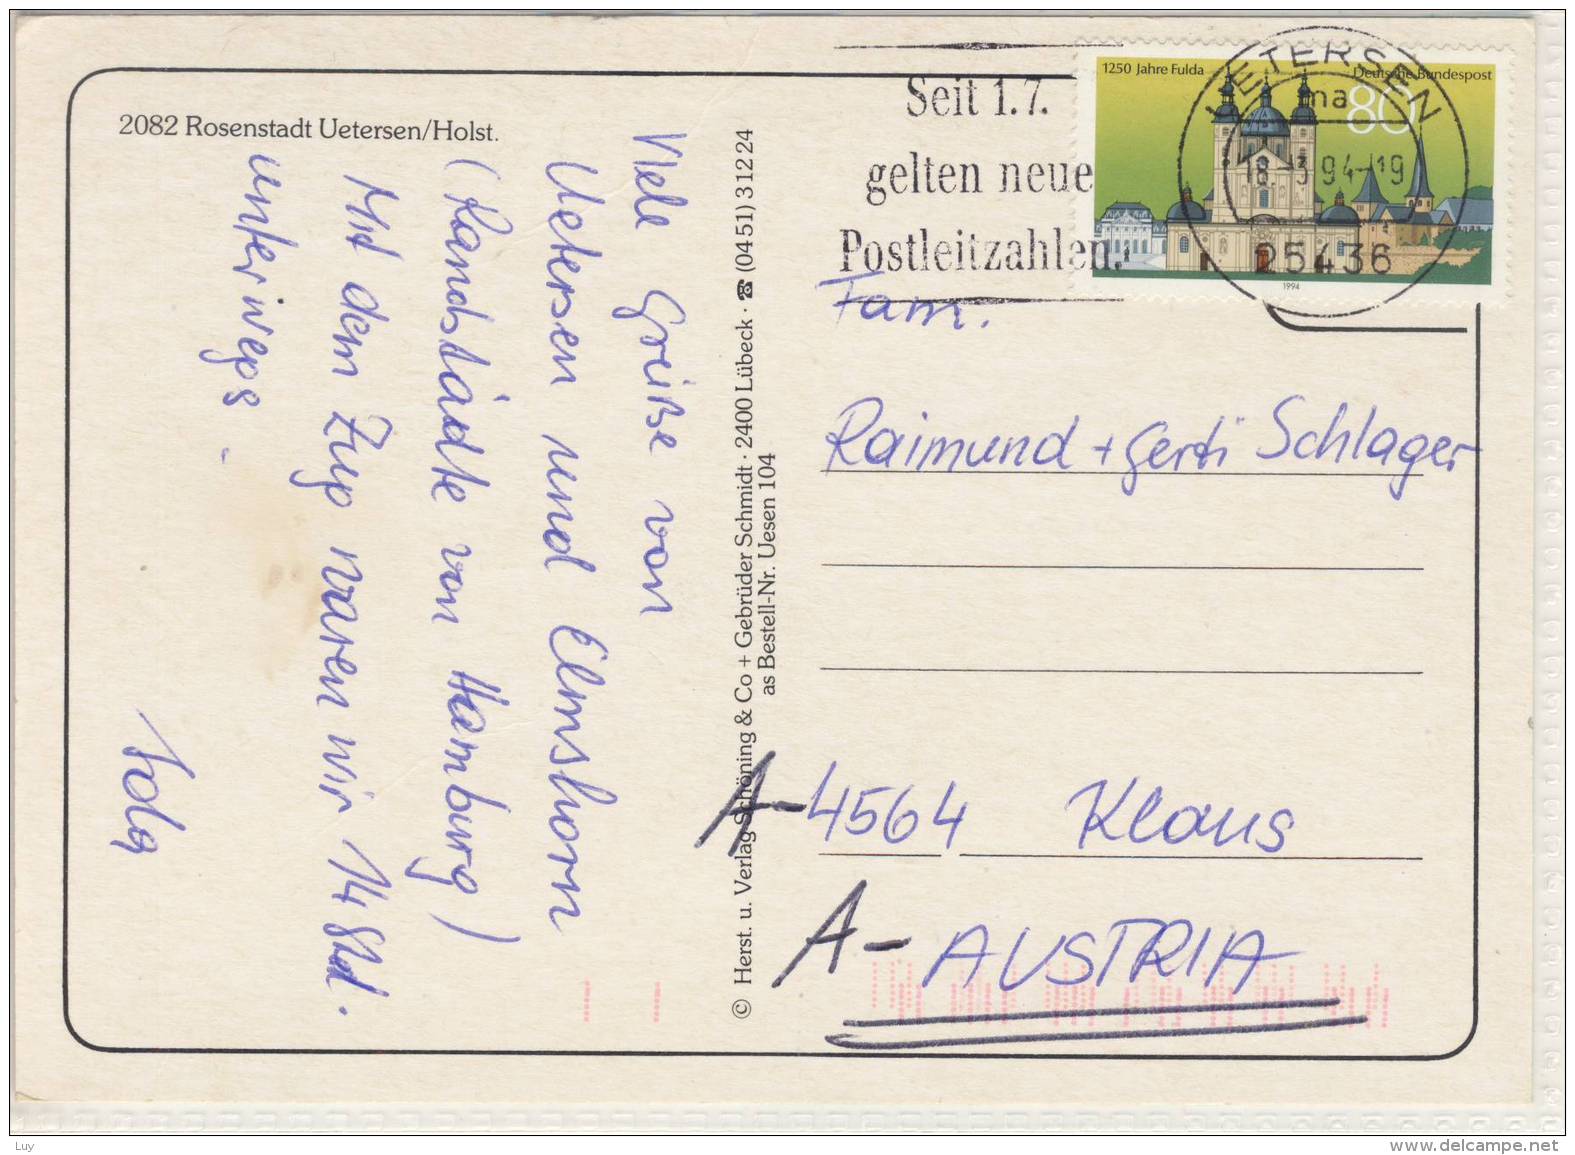 2082 Rosenstadt Uetersen/Holst.
Viele Grüße von
Uetersen und Elmshorn
(Randstädte von Hamburg)
Mit dem Zug waren wir 14 Std.
unterwegs.
© Herst. u. Verlag Schöning & Co + Gebrüder Schmidt · 2400 Lübeck · ☎ (0451) 31224
as Bestell-Nr. Uesen 104
Seit 1.7.
gelten neue
Postleitzahlen.
1250 Jahre Fulda
Deutsche Bundespost
80
1994
UETERSEN
ma
18-3 94-19
25436
Fam.
Raimund + Gerti Schlager
A-4564 Klaus
A- AUSTRIA
Luy
www.delcampe.net